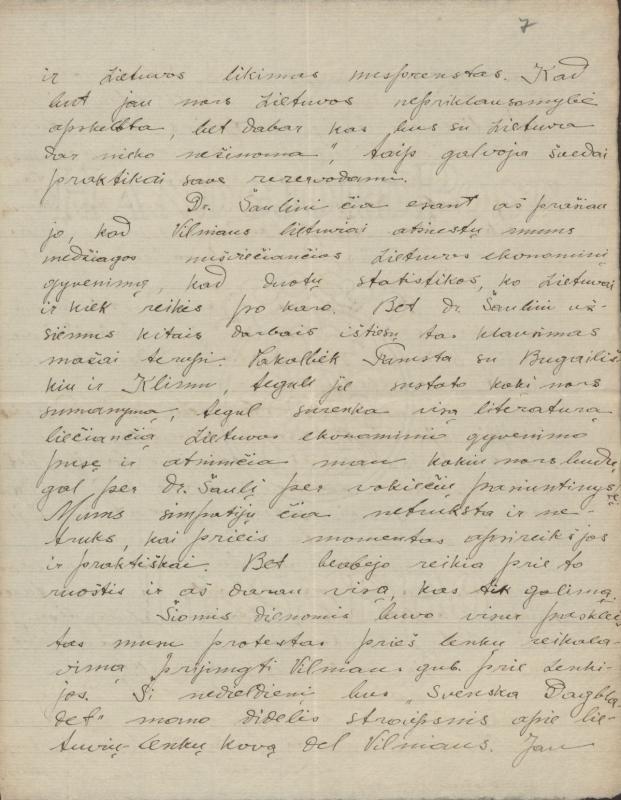 7
ir Lietuvos likimas nusprenstas. Kad
but jau nors Lietuvos nepriklausomybė
apskelbta, bet dabar kas „bus su Lietuva
dar nieko nežinoma", taip galvoja švedai
praktikai save rezervodami.
Dr. Šauliui čia esant aš prašiau
jo, kad Vilniaus lietuviai atsiųstų mums
medžiagos nušviečiančios Lietuvos ekonominį
gyvenimą, kad duotų statistikos, ko Lietuvai
ir kiek reikės po karo. Bet dr. Šauliui už-
siėmus kitais darbais ištiesų tas klausimas
mažai terupi. Pakalbėk Tamsta su Bugailiš-
kiu ir Klimu, tegul jie sustato kokį nors
sumanymą, tegul surenka visą literaturą
liečiančią Lietuvos ekonominio gyvenimo
pusę ir atsiunčia man kokiu nors budu,
gal per dr. Šaulį per vokiečių pasiuntinys-
tę. Mums simpatijų čia netruksta ir ne-
truks, kai prieis momentas apsireikš jos
ir praktiškai. Bet beabejo reikia prie to
ruoštis ir aš darau visa, kas tik galima.
Šiomis dienomis buvo visur paskleis-
tas musų protestas prieš lenkų reikala-
vimą prijungti Vilniaus gub. prie Lenki-
jos. Šį nedieldienį bus „Svenska Dagbla-
det" mano didelis straipsnis apie lie-
tuvių-lenkų kovą dėl Vilniaus. Jau